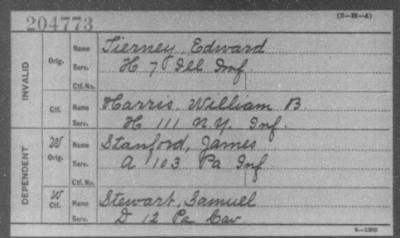 204773
(3-H-4)
INVALID
Orig. Name Tierney, Edward
Serv. H 7 Ill Inf.
Ctf. No.
Ctf. Name Harris, William B.
Serv. H 111 N.Y. Inf.
DEPENDENT
W Orig. Name Stanford, James
Serv. A 103 Pa Inf
Ctf. No.
W Ctf. Name Stewart, Samuel
Serv. D 12 Pa Cav.